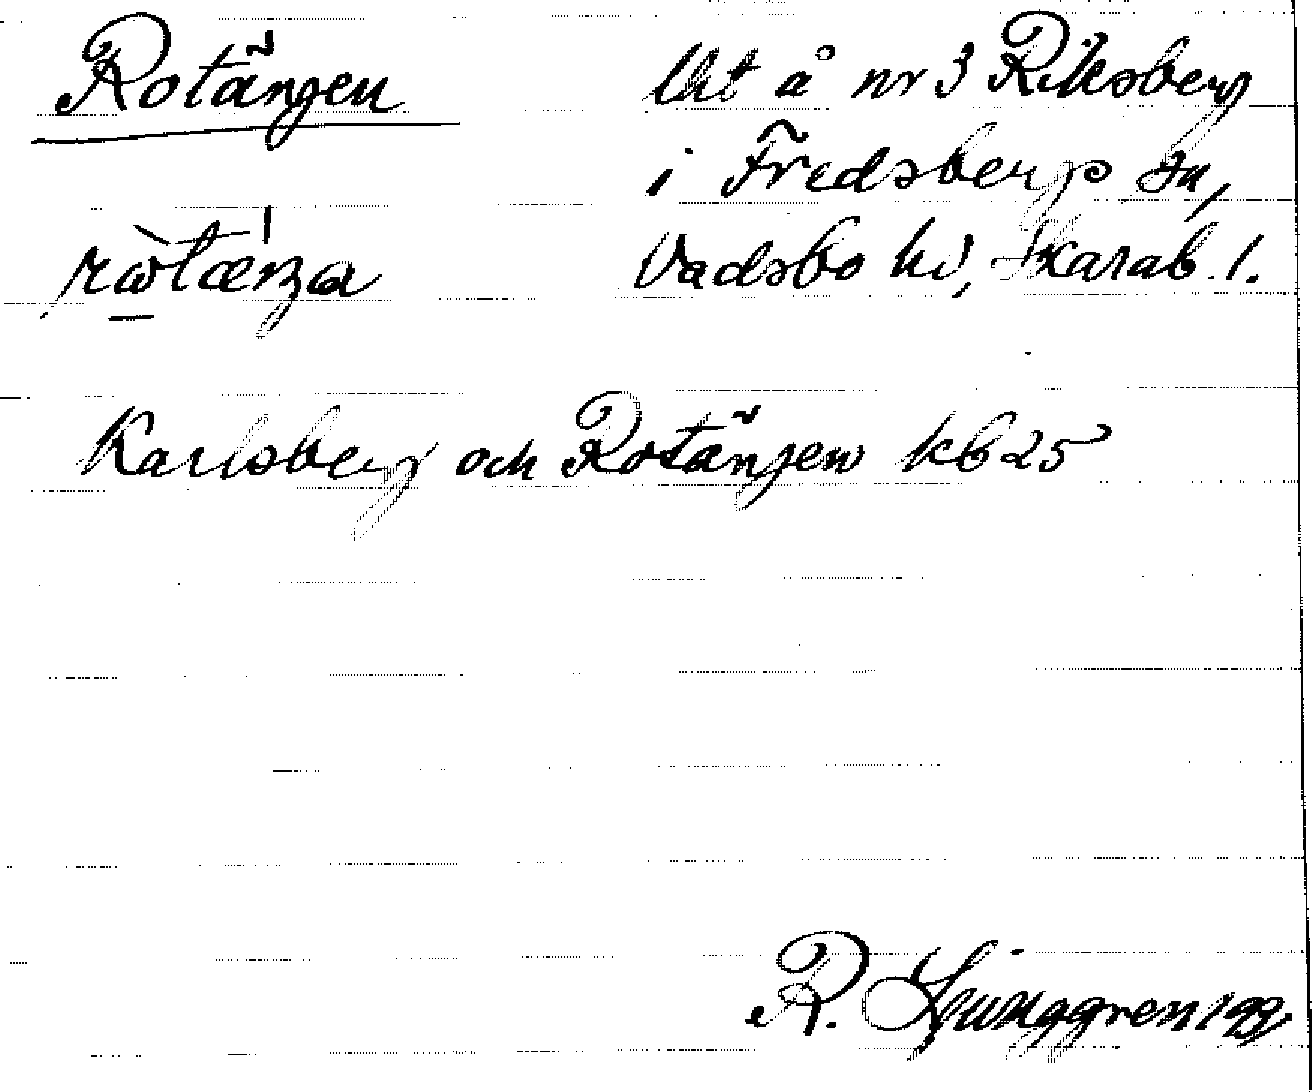 Rotängen
Lht å nr 3 Riksberg
i Fredsbergs sn,
Vadsbo hd, Skarab. l.
Karlsberg och Rotängen kb 25
R. Ljunggren